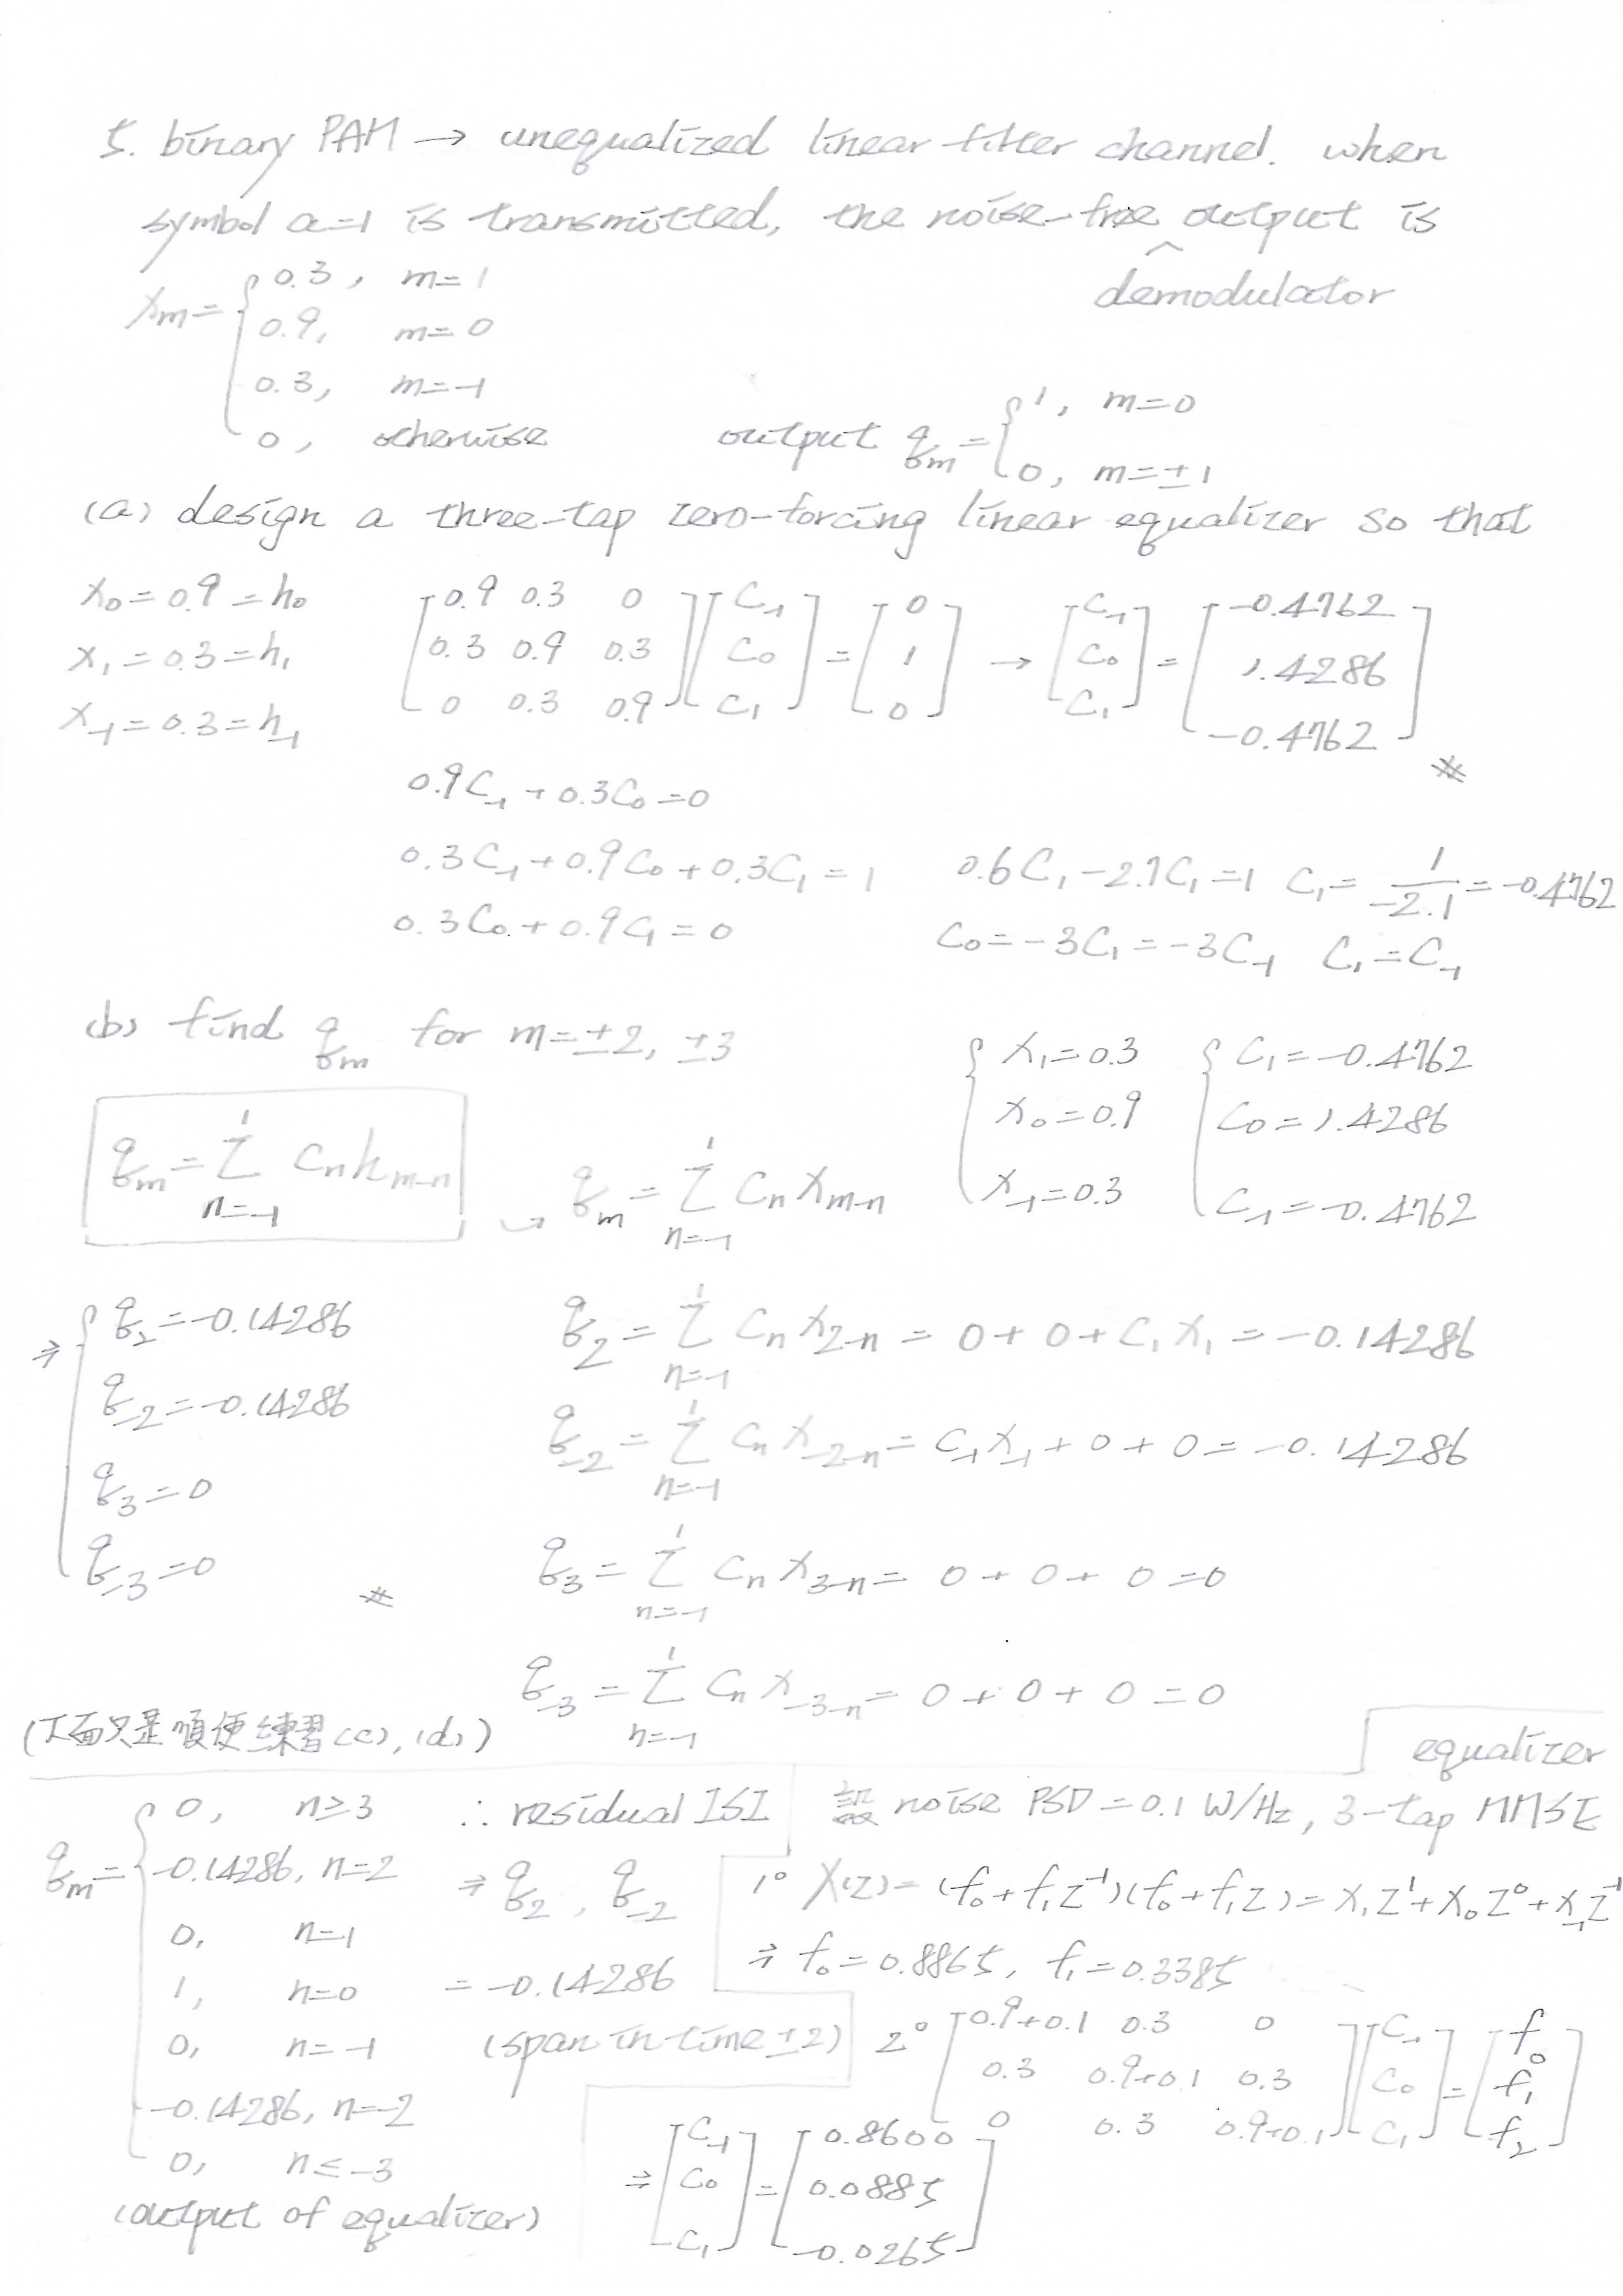 5. binary PAM → unequalized linear filter channel. when
symbol a=1 is transmitted, the noise-free output is
demodulator
x_m = { 0.3, m=1
0.9, m=0
0.3, m=-1
0, otherwise
output q_m = { 1, m=0
0, m=±1
(a) design a three-tap zero-forcing linear equalizer so that
x_0=0.9=h_0
x_1=0.3=h_1
x_-1=0.3=h_-1
[0.9 0.3 0; 0.3 0.9 0.3; 0 0.3 0.9][C_-1; C_0; C_1] = [0; 1; 0] → [C_-1; C_0; C_1] = [-0.4762; 1.4286; -0.4762] ※
0.9C_-1+0.3C_0=0
0.3C_-1+0.9C_0+0.3C_1=1 0.6C_1-2.7C_1=1 C_1= 1/-2.1 =-0.4762
0.3C_0+0.9C_1=0 C_0=-3C_1=-3C_-1 C_1=C_-1
(b) find q_m for m=±2, ±3
{ x_1=0.3
x_0=0.9
x_-1=0.3
{ C_1=-0.4762
C_0=1.4286
C_-1=-0.4762
q_m = Σ_{n=-1}^{1} C_n h_{m-n} → q_m = Σ_{n=-1}^{1} C_n x_{m-n}
⇒ { q_2=-0.14286
q_-2=-0.14286
q_3=0
q_-3=0 ※
q_2 = Σ_{n=-1}^{1} C_n x_{2-n} = 0+0+C_1x_1 = -0.14286
q_-2 = Σ_{n=-1}^{1} C_n x_{-2-n} = C_-1x_-1+0+0 = -0.14286
q_3 = Σ_{n=-1}^{1} C_n x_{3-n} = 0+0+0=0
q_-3 = Σ_{n=-1}^{1} C_n x_{-3-n} = 0+0+0=0
(下面只是順便練習(c),(d))
q_m = { 0, n≥3
-0.14286, n=2
0, n=1
1, n=0
0, n=-1
-0.14286, n=-2
0, n≤-3
(output of equalizer)
∴ residual ISI
⇒ q_2, q_-2
=-0.14286
(span in time ±2)
equalizer
設 noise PSD=0.1 W/Hz, 3-tap MMSE
1° X(z)=(f_0+f_1z^-1)(f_0+f_1z)=x_1z^1+x_0z^0+x_-1z^-1
⇒ f_0=0.8865, f_1=0.3385
2° [0.9+0.1 0.3 0; 0.3 0.9+0.1 0.3; 0 0.3 0.9+0.1][C_-1; C_0; C_1] = [f_0; f_1; f_2]
⇒ [C_-1; C_0; C_1] = [0.8600; 0.0885; -0.0265]